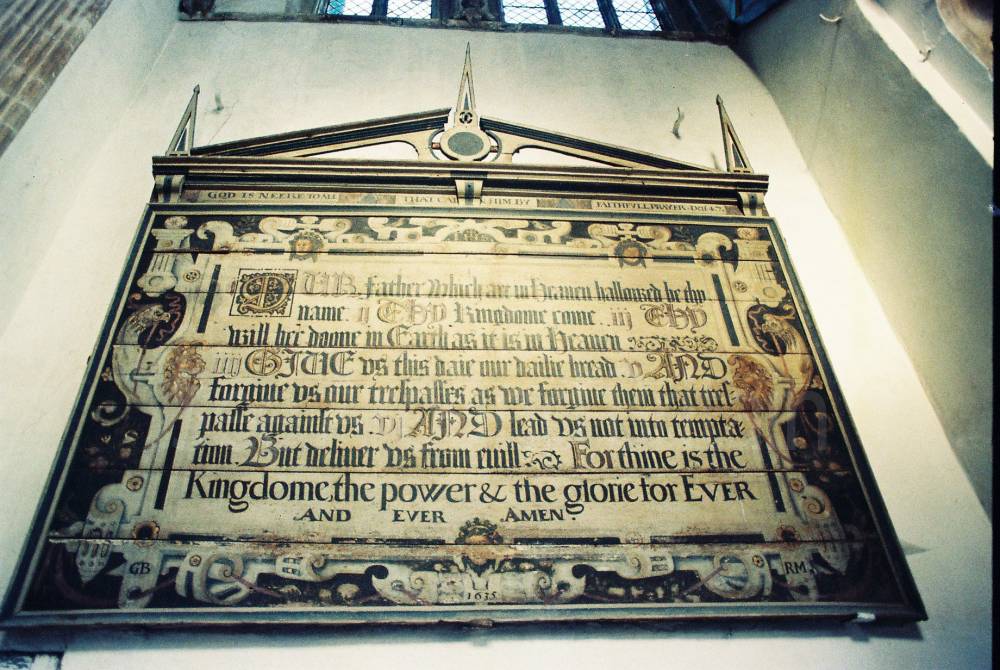 GOD IS NEERE TO ALL THAT CALL HIM BY FAITHFVLL PRAYER
OUR father which are in Heauen hallowed be thy
name. ij THY Kingdome come. iij THY
will bee doone in Earth as it is in Heauen
iiij GIUE vs this daie our dailie bread v AND
forgiue vs our trespasses as we forgiue them that tres-
passe againste vs vj AND lead vs not into tempta:
tion. But deliuer vs from euill. For thine is the
Kingdome, the power & the glorie for EVER
AND EVER AMEN:
GB
RM
1635